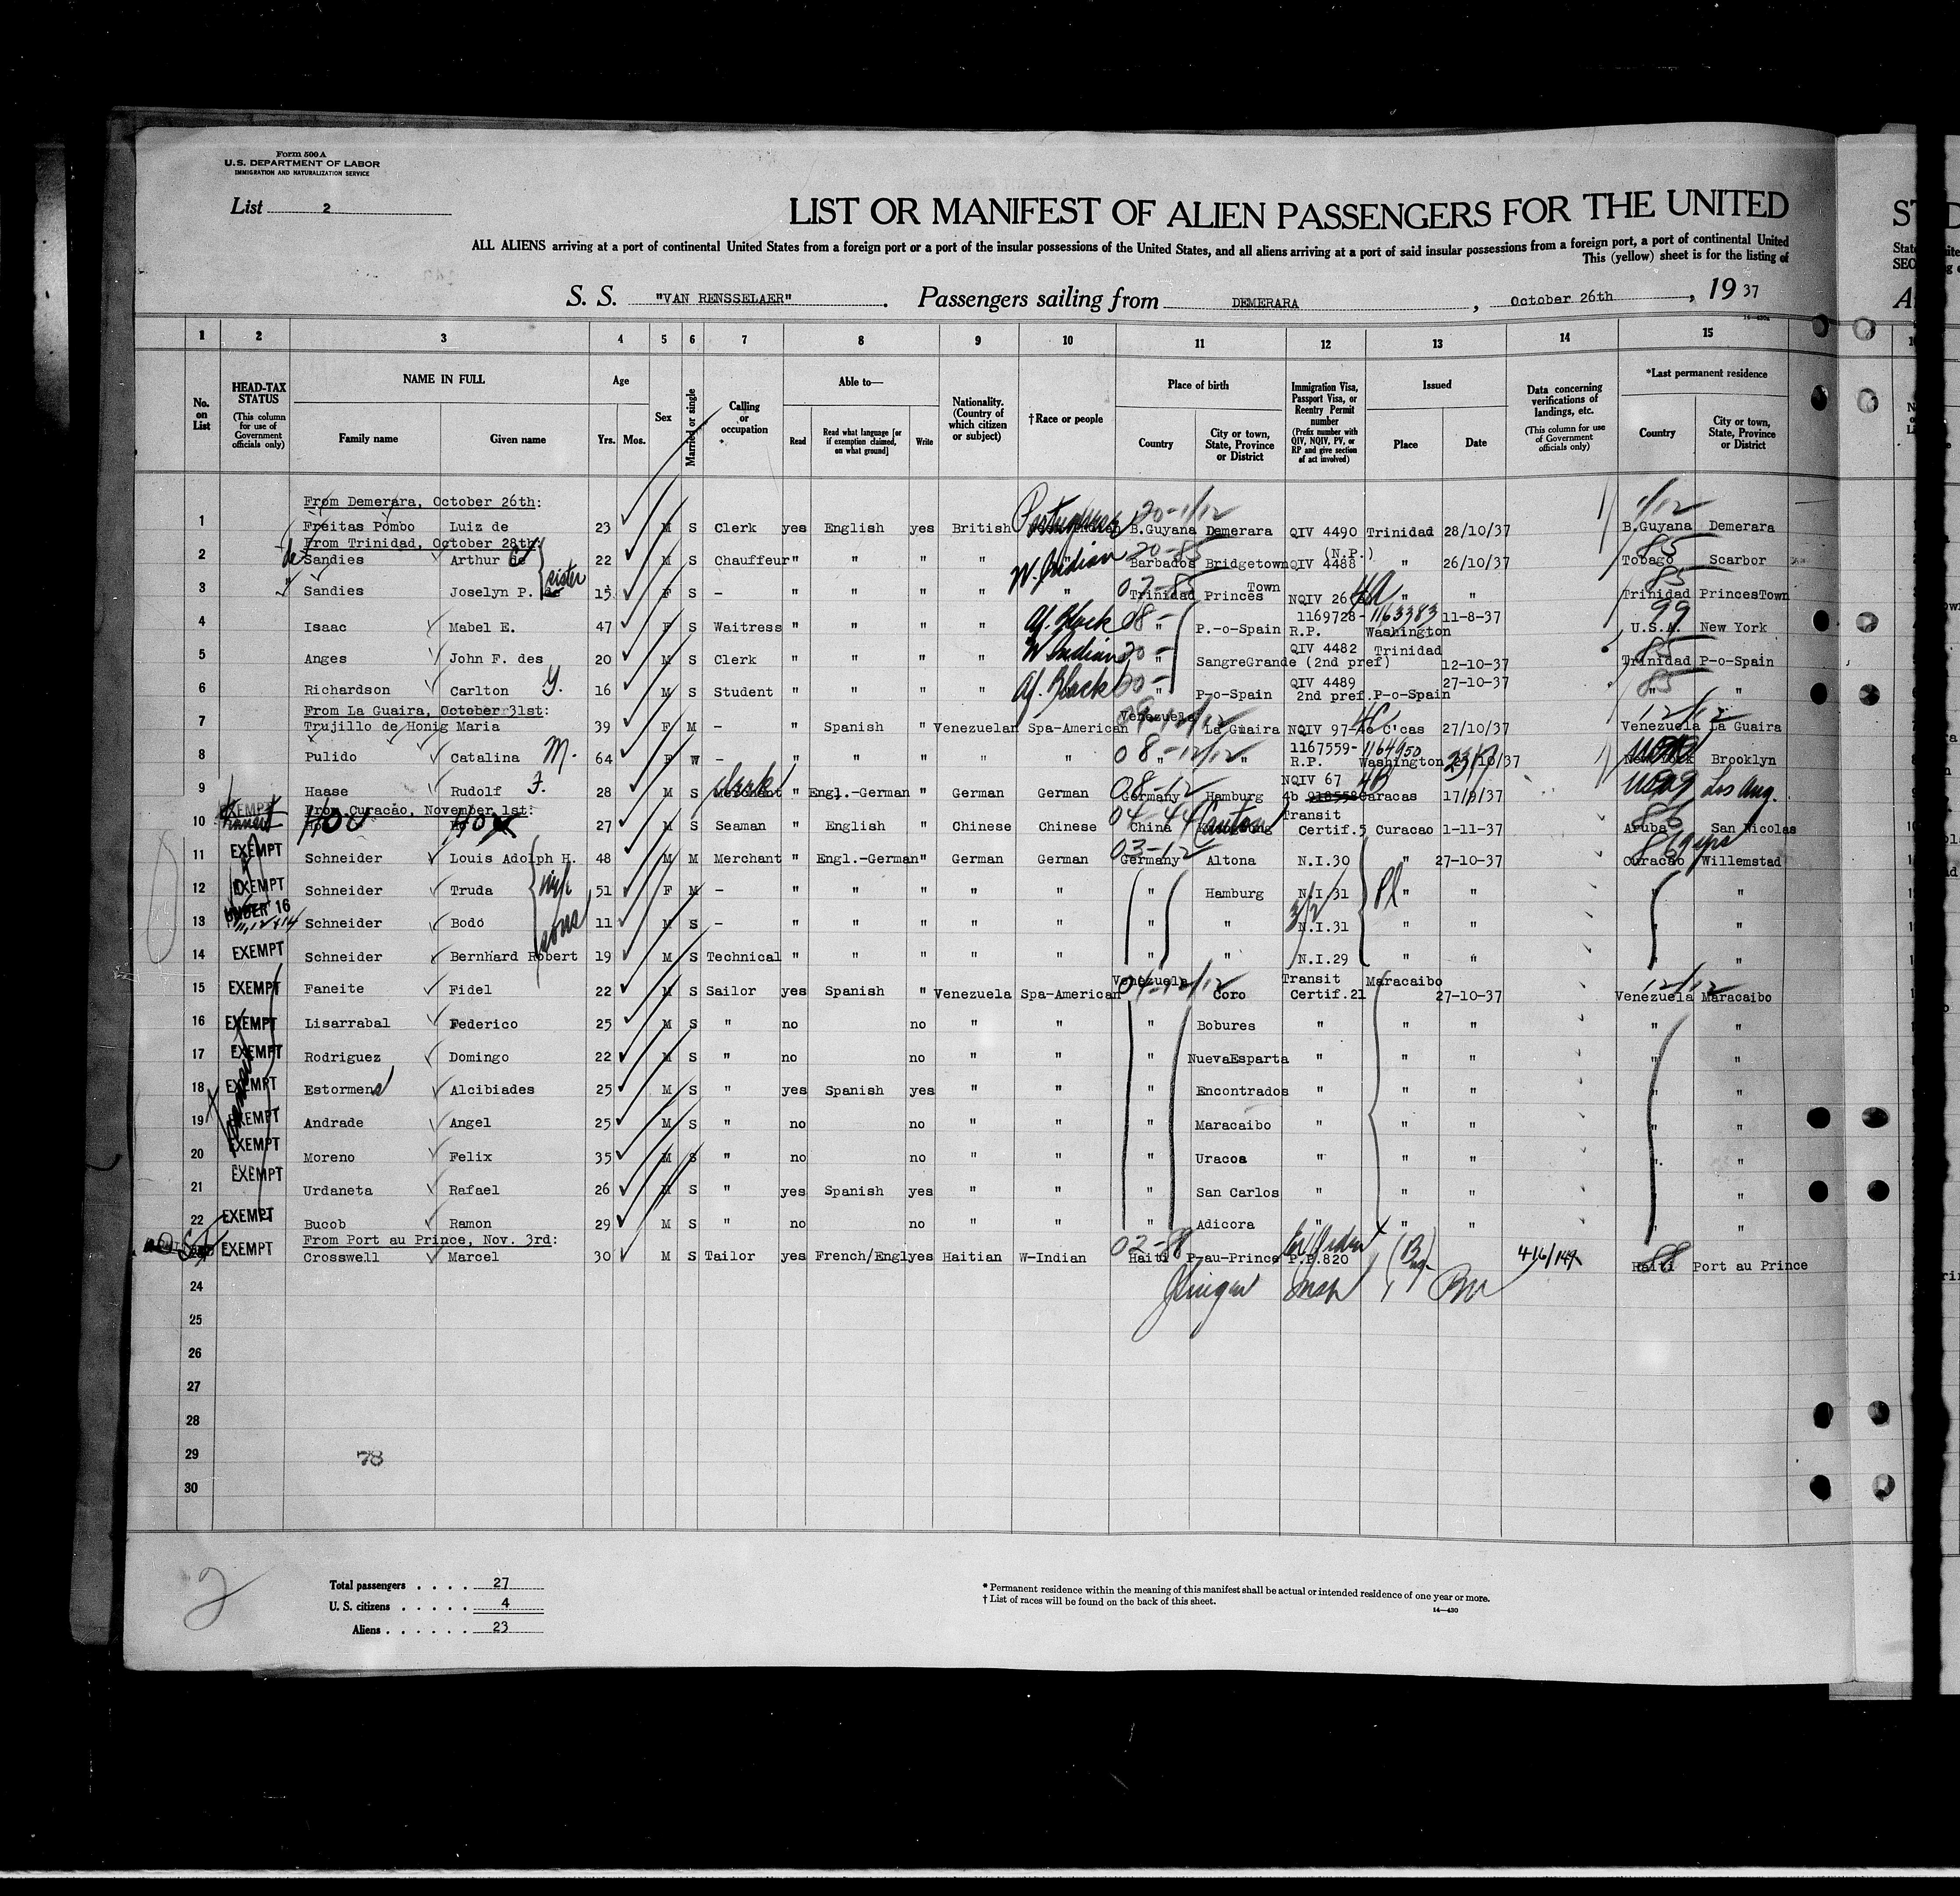 Form 500 A
U.S. DEPARTMENT OF LABOR
IMMIGRATION AND NATURALIZATION SERVICE
List 2
LIST OR MANIFEST OF ALIEN PASSENGERS FOR THE UNITED
ALL ALIENS arriving at a port of continental United States from a foreign port or a port of the insular possessions of the United States, and all aliens arriving at a port of said insular possessions from a foreign port, a port of continental United
This (yellow) sheet is for the listing of
S. S. "VAN RENSSELAER". Passengers sailing from DEMERARA, October 26th, 19 37
1 2 3 4 5 6 7 8 9 10 11 12 13 14 15
No. on List
HEAD-TAX STATUS (This column for use of Government officials only)
NAME IN FULL Family name Given name
Age Yrs. Mos.
Sex
Married or single
Calling or occupation
Able to— Read Read what language [or if exemption claimed, on what ground] Write
Nationality. (Country of which citizen or subject)
†Race or people
Place of birth Country City or town, State, Province or District
Immigration Visa, Passport Visa, or Reentry Permit number (Prefix number with QIV, NQIV, PV, or RP and give section of act involved)
Issued Place Date
Data concerning verifications of landings, etc. (This column for use of Government officials only)
*Last permanent residence Country City or town, State, Province or District
From Demerara, October 26th:
1 Freitas Pombo Luiz de 23 M S Clerk yes English yes British Portuguese 20-1/12 B.Guyana Demerara QIV 4490 Trinidad 28/10/37 1/12 B.Guyana Demerara
From Trinidad, October 28th:
2 de Sandies Arthur de 22 M S Chauffeur " " " " W. Indian 20-85 Barbados Bridgetown (N.P.) QIV 4488 " 26/10/37 85 Tobago Scarbor
3 " Sandies Joselyn P. de sister 15 F S - " " " " " 07-85 Trinidad Princes Town NQIV 26 4a " " 85 Trinidad PrincesTown
4 Isaac Mabel E. 47 F S Waitress " " " " Af. Black 08- " P.-o-Spain 1169728-1163383 R.P. Washington 11-8-37 99 U.S.A. New York
5 Anges John F. des 20 M S Clerk " " " " W Indian 20- " SangreGrande QIV 4482 (2nd pref) Trinidad 12-10-37 85 Trinidad P-o-Spain
6 Richardson Carlton Y. 16 M S Student " " " " Af. Black 20- " P-o-Spain QIV 4489 2nd pref. P-o-Spain 27-10-37 85 " "
From La Guaira, October 31st:
7 Trujillo de Honig Maria 39 F M - " Spanish " Venezuelan Spa-American Venezuela La Guaira NQIV 97-4c C'cas 27/10/37 12/12 Venezuela La Guaira
8 Pulido Catalina M. 64 F W - " " " " " 08-12/12 " " 1167559-1164950 R.P. Washington /10/37 New York Brooklyn
9 Haase Rudolf F. 28 M S Merchant Clerk " Engl.-German " German German 08-12 Germany Hamburg NQIV 67 4B 4b 918558 Caracas 17/9/37 Los Ang.
From Curacao, November 1st:
10 EXEMPT Transit HOU HO 27 M S Seaman " English " Chinese Chinese 04-44 China Canton Transit Certif.5 Curacao 1-11-37 86 Aruba San Nicolas
11 EXEMPT Schneider Louis Adolph H. 48 M M Merchant " Engl.-German " German German 03-12 Germany Altona N.I.30 " 27-10-37 86 9 yrs Curacao Willemstad
12 EXEMPT Schneider Truda wife 51 F M - " " " " " " Hamburg N.I.31 Pl " " " "
13 UNDER 16 Schneider Bodo sons 11 M S - " " " " " " " 3/2 N.I.31 " " " "
14 EXEMPT Schneider Bernhard Robert 19 M S Technical " " " " " " " N.I.29 " " " "
15 EXEMPT Faneite Fidel 22 M S Sailor yes Spanish " Venezuela Spa-American 04-12/12 Venezuela Coro Transit Certif.21 Maracaibo 27-10-37 12/12 Venezuela Maracaibo
16 EXEMPT Lisarrabal Federico 25 M S " no no " " " Bobures " " " " "
17 EXEMPT Rodriguez Domingo 22 M S " no no " " " NuevaEsparta " " " " "
18 EXEMPT Estormen Alcibiades 25 M S " yes Spanish yes " " " Encontrados " " " " "
19 EXEMPT Andrade Angel 25 M S " no no " " " Maracaibo " " " " "
20 EXEMPT Moreno Felix 35 M S " no no " " " Uracoa " " " " "
21 EXEMPT Urdaneta Rafael 26 M S " yes Spanish yes " " " San Carlos " " " " "
22 EXEMPT Bucob Ramon 29 M S " no no " " " Adicora " " " " "
From Port au Prince, Nov. 3rd:
EXEMPT Crosswell Marcel 30 M S Tailor yes French/Engl yes Haitian W-Indian 02-88 Haiti P-au-Prince P.P.820 88 Haiti Port au Prince
24
25
26
27
28
29 78
30
2
Total passengers . . . . 27
U.S. citizens . . . . . 4
Aliens . . . . . . 23
* Permanent residence within the meaning of this manifest shall be actual or intended residence of one year or more.
† List of races will be found on the back of this sheet.
14—430